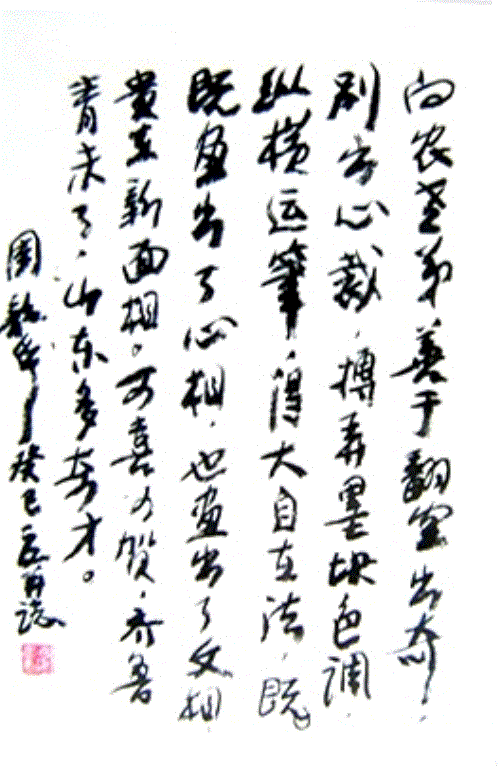 向农老弟善于翻空出奇，
别出心裁，搏弄墨块色调，
纵横运筆，得大自在法，既
既画出了心相，也画出了文相
貴在新面相。可喜可贺，齐鲁
青未了，山东多奇才。
周韶华 癸巳